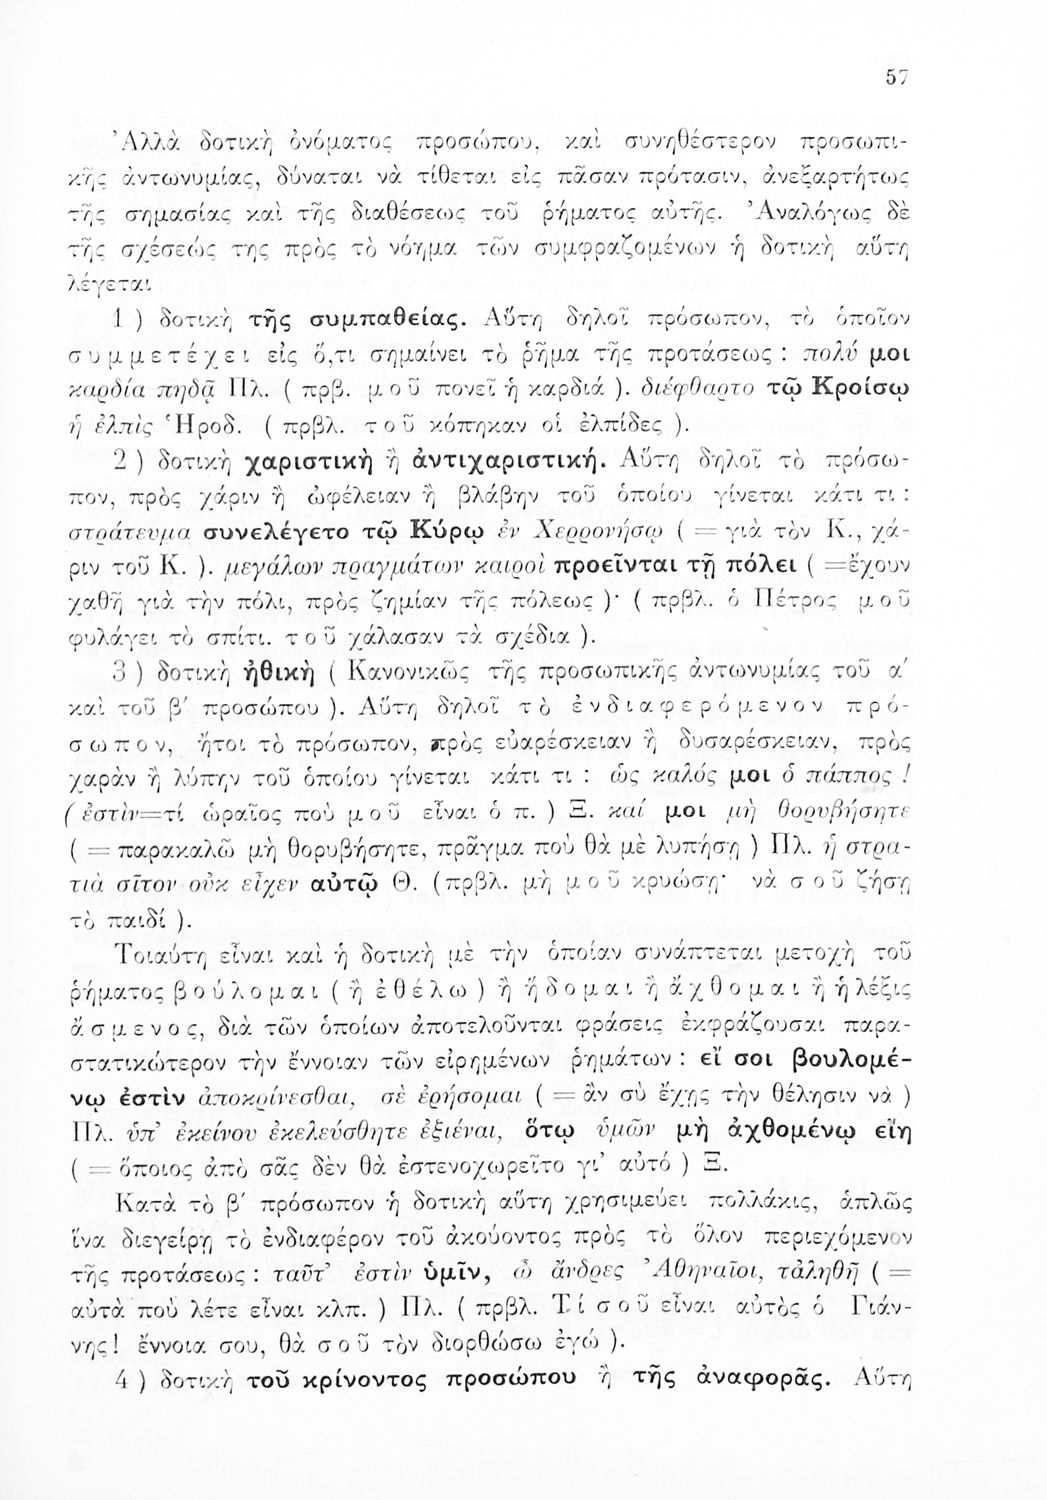 57
Ἀλλὰ δοτικὴ ὀνόματος προσώπου, καὶ συνηθέστερον προσωπι-
κῆς ἀντωνυμίας, δύναται νὰ τίθεται εἰς πᾶσαν πρότασιν, ἀνεξαρτήτως
τῆς σημασίας καὶ τῆς διαθέσεως τοῦ ῥήματος αὐτῆς. Ἀναλόγως δὲ
τῆς σχέσεώς της πρὸς τὸ νόημα τῶν συμφραζομένων ἡ δοτικὴ αὕτη
λέγεται
1 ) δοτικὴ τῆς συμπαθείας. Αὕτη δηλοῖ πρόσωπον, τὸ ὁποῖον
συμμετέχει εἰς ὅ,τι σημαίνει τὸ ῥῆμα τῆς προτάσεως : πολύ μοι
καρδία πηδᾷ Πλ. ( πρβ. μοῦ πονεῖ ἡ καρδιά ). διέφθαρτο τῷ Κροίσῳ
ἡ ἐλπὶς Ἡροδ. ( πρβλ. τοῦ κόπηκαν οἱ ἐλπίδες ).
2 ) δοτικὴ χαριστικὴ ἢ ἀντιχαριστική. Αὕτη δηλοῖ τὸ πρόσω-
πον, πρὸς χάριν ἢ ὠφέλειαν ἢ βλάβην τοῦ ὁποίου γίνεται κάτι τι :
στράτευμα συνελέγετο τῷ Κύρῳ ἐν Χερρονήσῳ ( = γιὰ τὸν Κ., χά-
ριν τοῦ Κ. ). μεγάλων πραγμάτων καιροὶ προεῖνται τῇ πόλει ( =ἔχουν
χαθῆ γιὰ τὴν πόλι, πρὸς ζημίαν τῆς πόλεως )· ( πρβλ. ὁ Πέτρος μοῦ
φυλάγει τὸ σπίτι. τοῦ χάλασαν τὰ σχέδια ).
3 ) δοτικὴ ἠθικὴ ( Κανονικῶς τῆς προσωπικῆς ἀντωνυμίας τοῦ α′
καὶ τοῦ β′ προσώπου ). Αὕτη δηλοῖ τὸ ἐνδιαφερόμενον πρό-
σωπον, ἤτοι τὸ πρόσωπον, πρὸς εὐαρέσκειαν ἢ δυσαρέσκειαν, πρὸς
χαρὰν ἢ λύπην τοῦ ὁποίου γίνεται κάτι τι : ὡς καλός μοι ὁ πάππος !
( ἐστὶν=τί ὡραῖος ποὺ μοῦ εἶναι ὁ π. ) Ξ. καί μοι μὴ θορυβήσητε
( = παρακαλῶ μὴ θορυβήσητε, πρᾶγμα ποὺ θὰ μὲ λυπήσῃ ) Πλ. ἡ στρα-
τιὰ σῖτον οὐκ εἶχεν αὐτῷ Θ. (πρβλ. μὴ μοῦ κρυώσῃ· νὰ σοῦ ζήσῃ
τὸ παιδί ).
Τοιαύτη εἶναι καὶ ἡ δοτικὴ μὲ τὴν ὁποίαν συνάπτεται μετοχὴ τοῦ
ῥήματος βούλομαι ( ἢ ἐθέλω ) ἢ ἥδομαι ἢ ἄχθομαι ἢ ἡ λέξις
ἄσμενος, διὰ τῶν ὁποίων ἀποτελοῦνται φράσεις ἐκφράζουσαι παρα-
στατικώτερον τὴν ἔννοιαν τῶν εἰρημένων ῥημάτων : εἴ σοι βουλομέ-
νῳ ἐστὶν ἀποκρίνεσθαι, σὲ ἐρήσομαι ( = ἂν σὺ ἔχῃς τὴν θέλησιν νὰ )
Πλ. ὑπ’ ἐκείνου ἐκελεύσθητε ἐξιέναι, ὅτῳ ὑμῶν μὴ ἀχθομένῳ εἴη
( = ὅποιος ἀπὸ σᾶς δὲν θὰ ἐστενοχωρεῖτο γι’ αὐτό ) Ξ.
Κατὰ τὸ β′ πρόσωπον ἡ δοτικὴ αὕτη χρησιμεύει πολλάκις, ἁπλῶς
ἵνα διεγείρῃ τὸ ἐνδιαφέρον τοῦ ἀκούοντος πρὸς τὸ ὅλον περιεχόμενον
τῆς προτάσεως : ταῦτ’ ἐστὶν ὑμῖν, ὦ ἄνδρες Ἀθηναῖοι, τἀληθῆ ( =
αὐτὰ ποὺ λέτε εἶναι κλπ. ) Πλ. ( πρβλ. Τί σοῦ εἶναι αὐτὸς ὁ Γιάν-
νης! ἔννοια σου, θὰ σοῦ τὸν διορθώσω ἐγώ ).
4 ) δοτικὴ τοῦ κρίνοντος προσώπου ἢ τῆς ἀναφορᾶς. Αὕτη